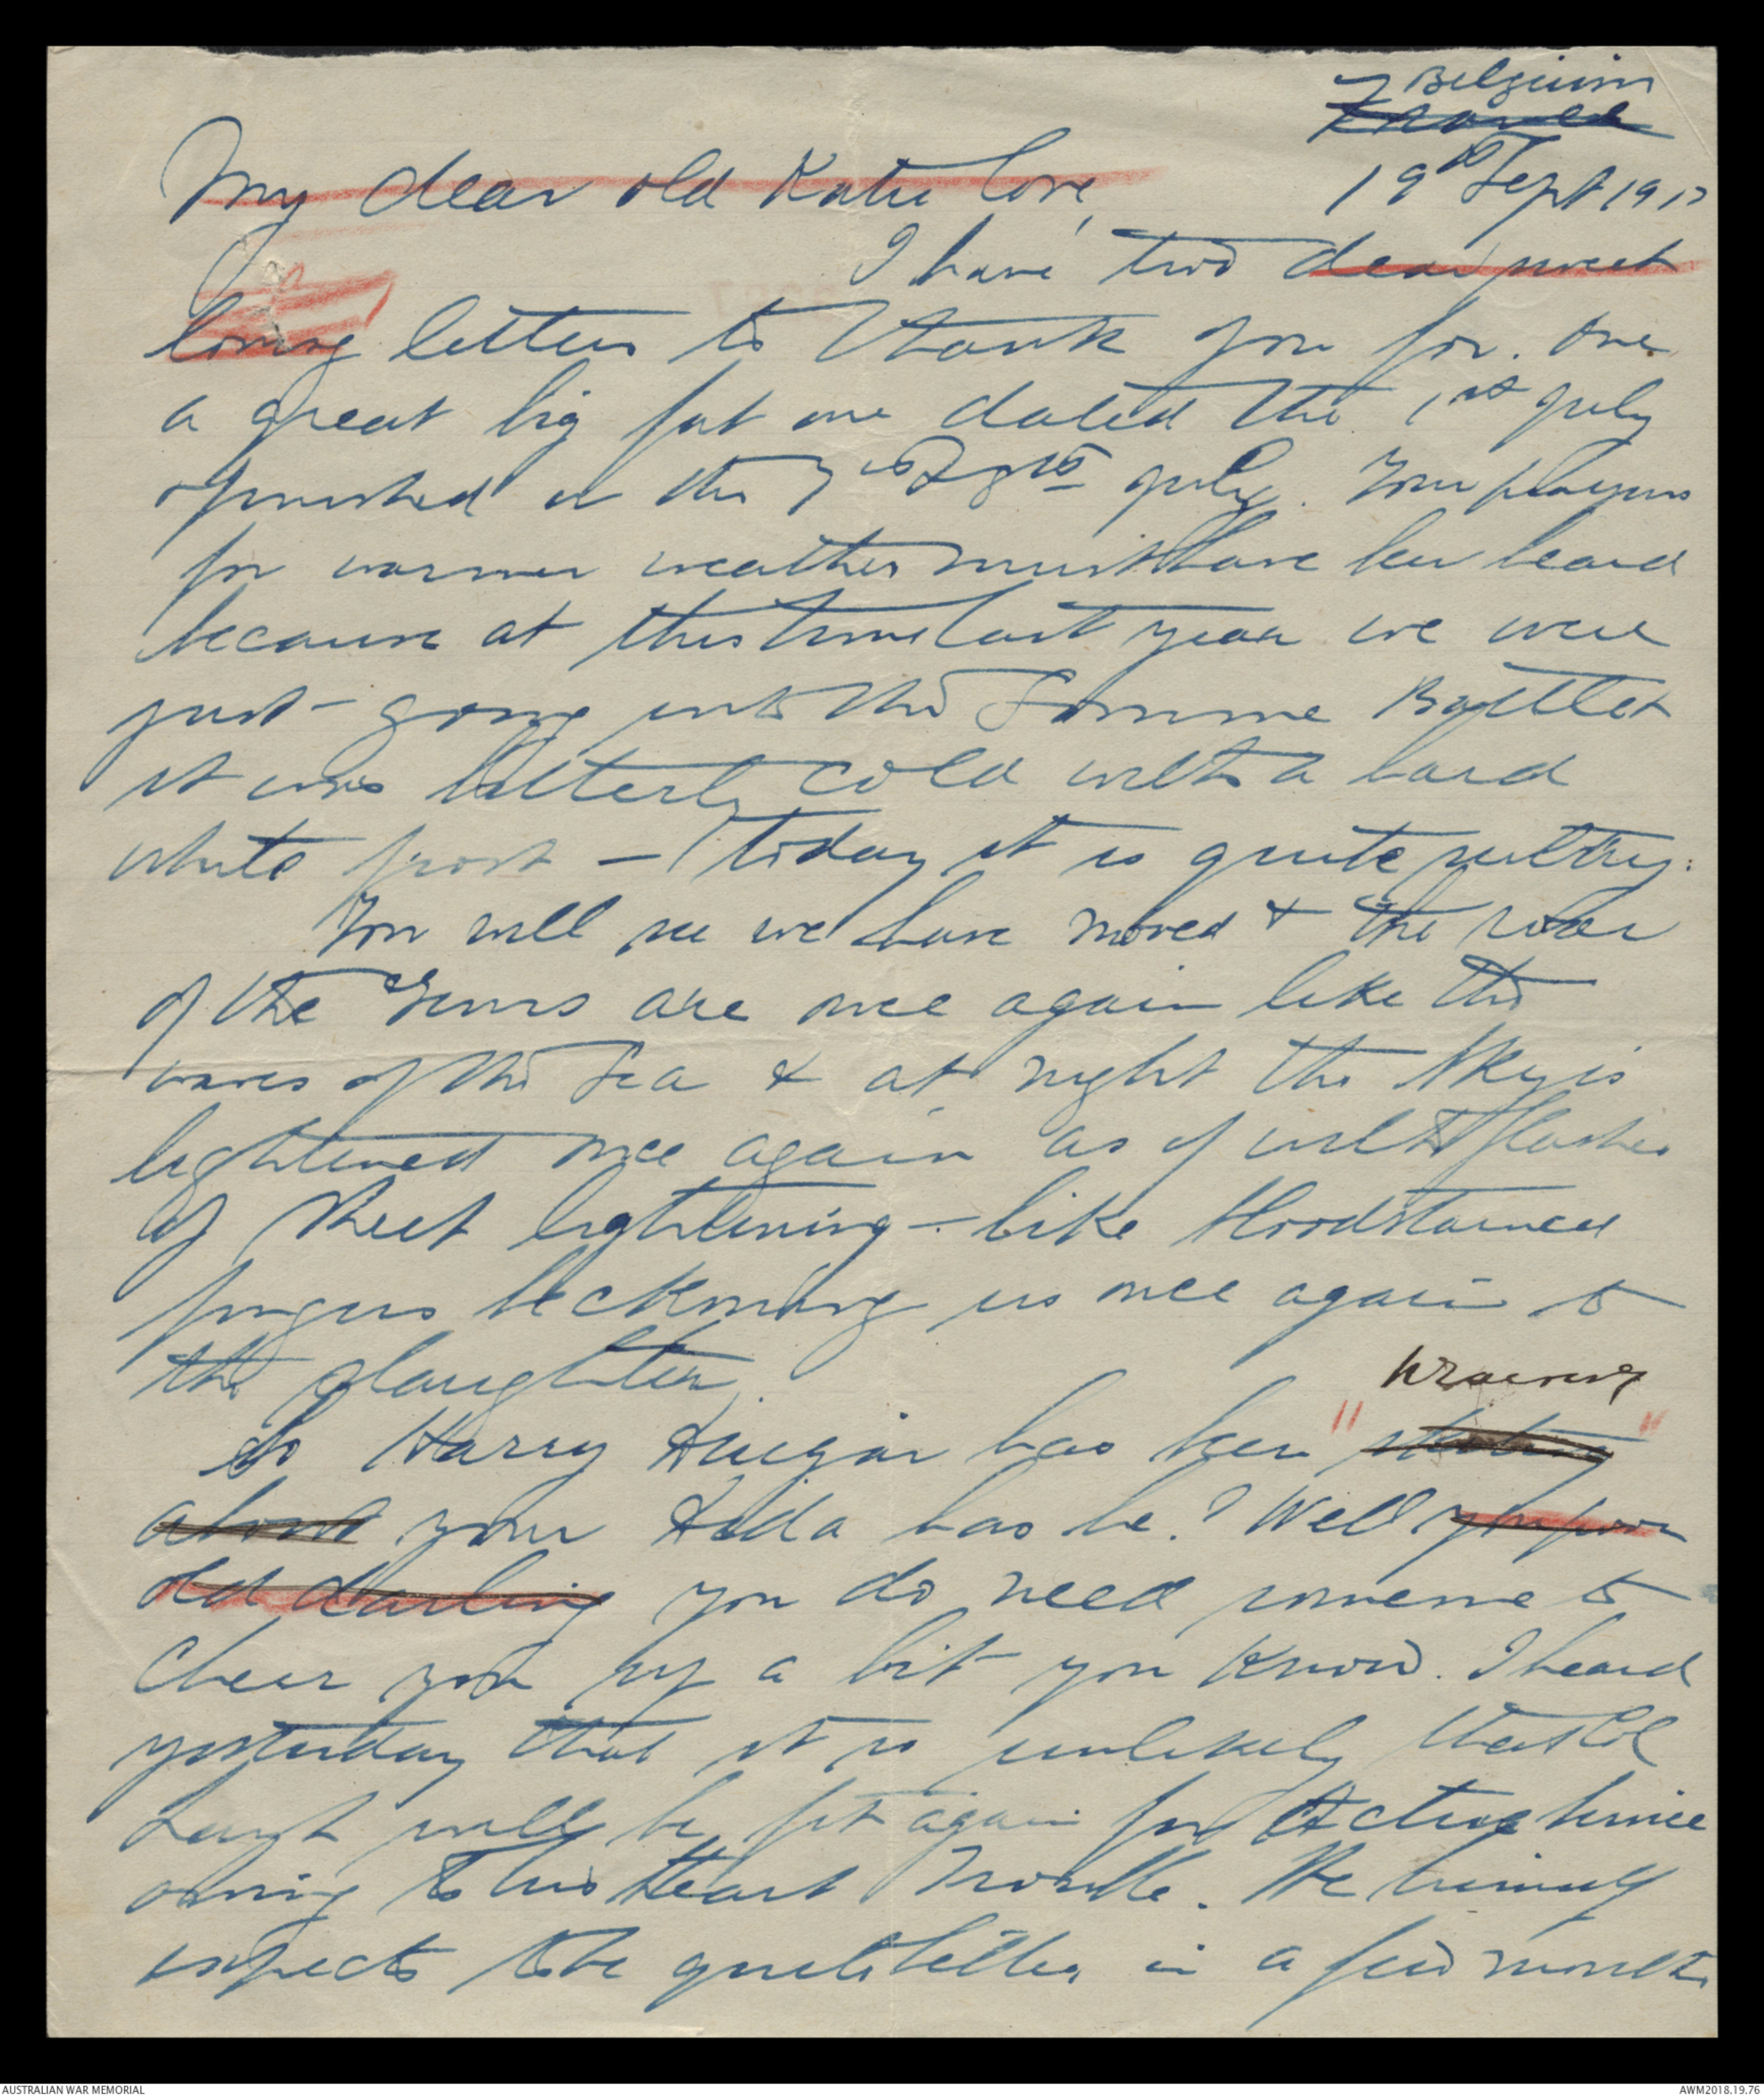 Belgium
France
19th Sept 1917
My dear old Katie love,
I have two dear sweet
loving letters to thank you for. One
a great big fat one dated the 1st July
& finished on the 7th & 8th July. Your prayers
for warmer weather must have been heard
because at this time last year we were
just going into the Somme Battle &
it was bitterly cold with a hard
white frost — today it is quite sultry.
You will see we have moved & the roar
of the Guns are once again like the
waves of the Sea & at night the Sky is
lightened once again as if with flashes
of Sheet lightening — like bloodstained
fingers beckoning us once again to
the slaughter.
So Harry has been "
"
about your Hilda has he? Well you poor
old darling you do need someone to
cheer you up a bit you know. I heard
yesterday that it is unlikely that Col
will be fit again for Active Service
owing to his Heart Trouble. He himself
expects to be quite better in a few months
AUSTRALIAN WAR MEMORIAL
AWM2018.19.76